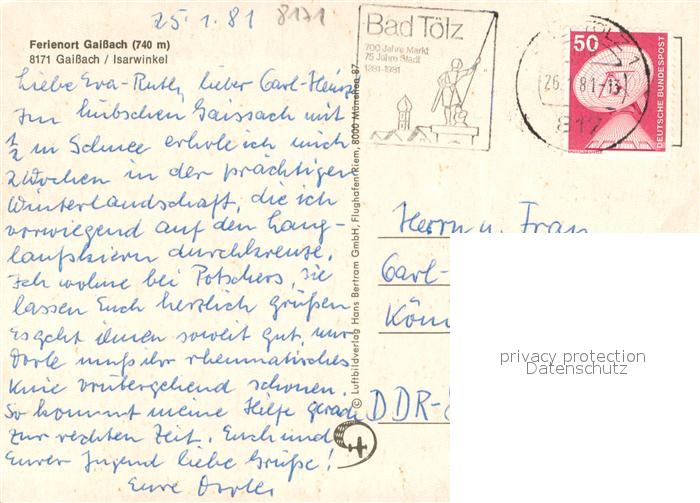 25.1.81 8171
Ferienort Gaißach (740 m)
8171 Gaißach / Isarwinkel
Liebe Eva-Ruth, lieber Carl-Heinz
Im hübschen Gaissach mit
½ m Schnee erhole ich mich
2 Wochen in der prächtigen
Winterlandschaft, die ich
vorwiegend auf den Lang-
laufskiern durchkreuze.
Ich wohne bei Potschers, sie
lassen Euch herzlich grüßen
Es geht ihnen soweit gut, nur
Dorle muß ihr rheumatisches
Knie vorübergehend schonen.
So kommt meine Hilfe gerade
zur rechten Zeit. Euch und
Eurer Jugend liebe Grüße!
Eure
© Luftbildverlag Hans Bertram GmbH, Flughafen Riem, 8000 München 87
Bad Tölz
700 Jahre Markt
75 Jahre Stadt
1281-1981
TÖLZ 1
26.1.81-13
817
50
DEUTSCHE BUNDESPOST
Herrn u. Frau
Carl-
Köni
DDR-
privacy protection
Datenschutz